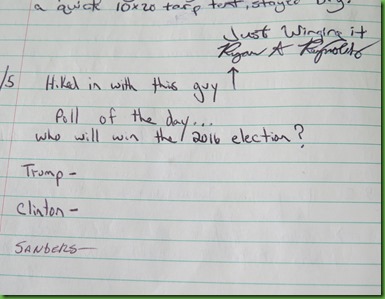 a quick 10x20 tarp tent, stayed Dry.
Just Winging it
Ryan A Reynolds
/5 Hiked in with this guy ↑
Poll of the day...
who will win the 2016 election?
Trump -
Clinton -
SANDERS -